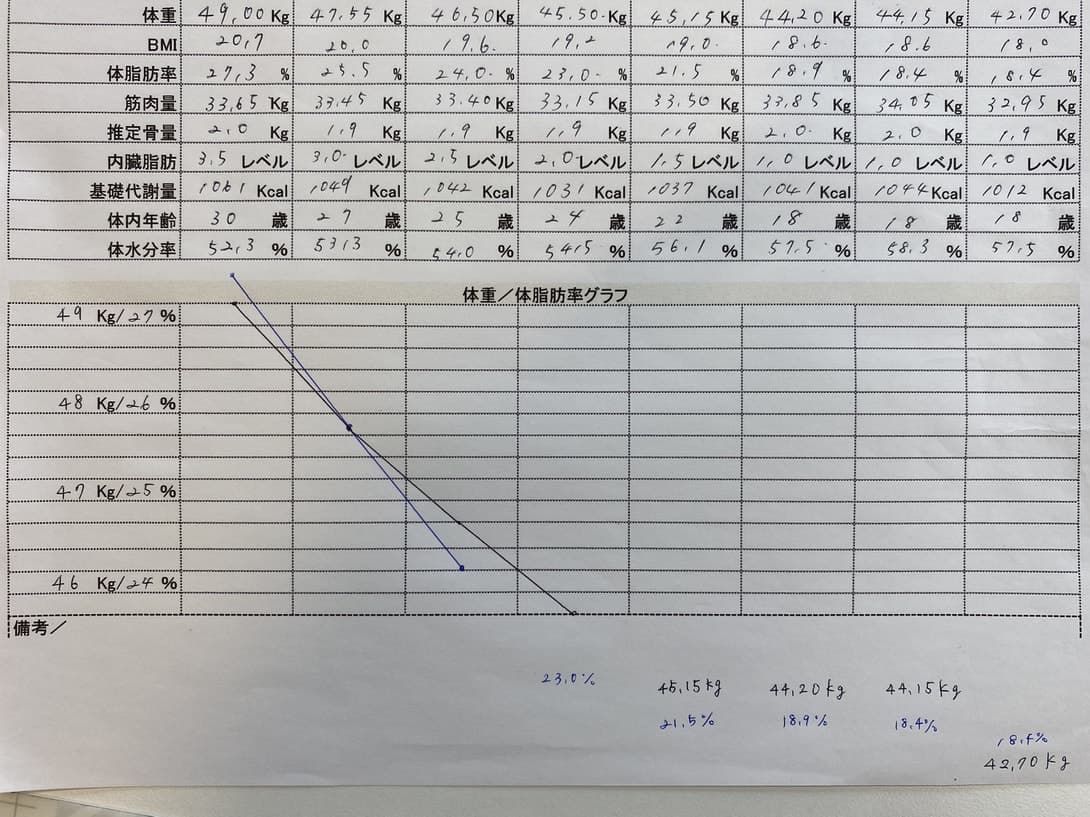 体重 49.00 Kg 47.55 Kg 46.50 Kg 45.50 Kg 45.15 Kg 44.20 Kg 44.15 Kg 42.70 Kg
BMI 20.7 20.0 19.6 19.2 19.0 18.6 18.6 18.0
体脂肪率 27.3 % 25.5 % 24.0 % 23.0 % 21.5 % 18.9 % 18.4 % 18.4 %
筋肉量 33.65 Kg 33.45 Kg 33.40 Kg 33.15 Kg 33.50 Kg 33.85 Kg 34.05 Kg 32.95 Kg
推定骨量 2.0 Kg 1.9 Kg 1.9 Kg 1.9 Kg 1.9 Kg 2.0 Kg 2.0 Kg 1.9 Kg
内臓脂肪 3.5 レベル 3.0 レベル 2.5 レベル 2.0 レベル 1.5 レベル 1.0 レベル 1.0 レベル 1.0 レベル
基礎代謝量 1061 Kcal 1049 Kcal 1042 Kcal 1031 Kcal 1037 Kcal 1041 Kcal 1044 Kcal 1012 Kcal
体内年齢 30 歳 27 歳 25 歳 24 歳 22 歳 18 歳 18 歳 18 歳
体水分率 52.3 % 53.3 % 54.0 % 54.5 % 56.1 % 57.5 % 58.3 % 57.5 %
体重／体脂肪率グラフ
49 Kg/27 %
48 Kg/26 %
47 Kg/25 %
46 Kg/24 %
備考／
23.0% 45.15kg 44.20kg 44.15kg
21.5% 18.9% 18.4%
18.4%
42.70kg